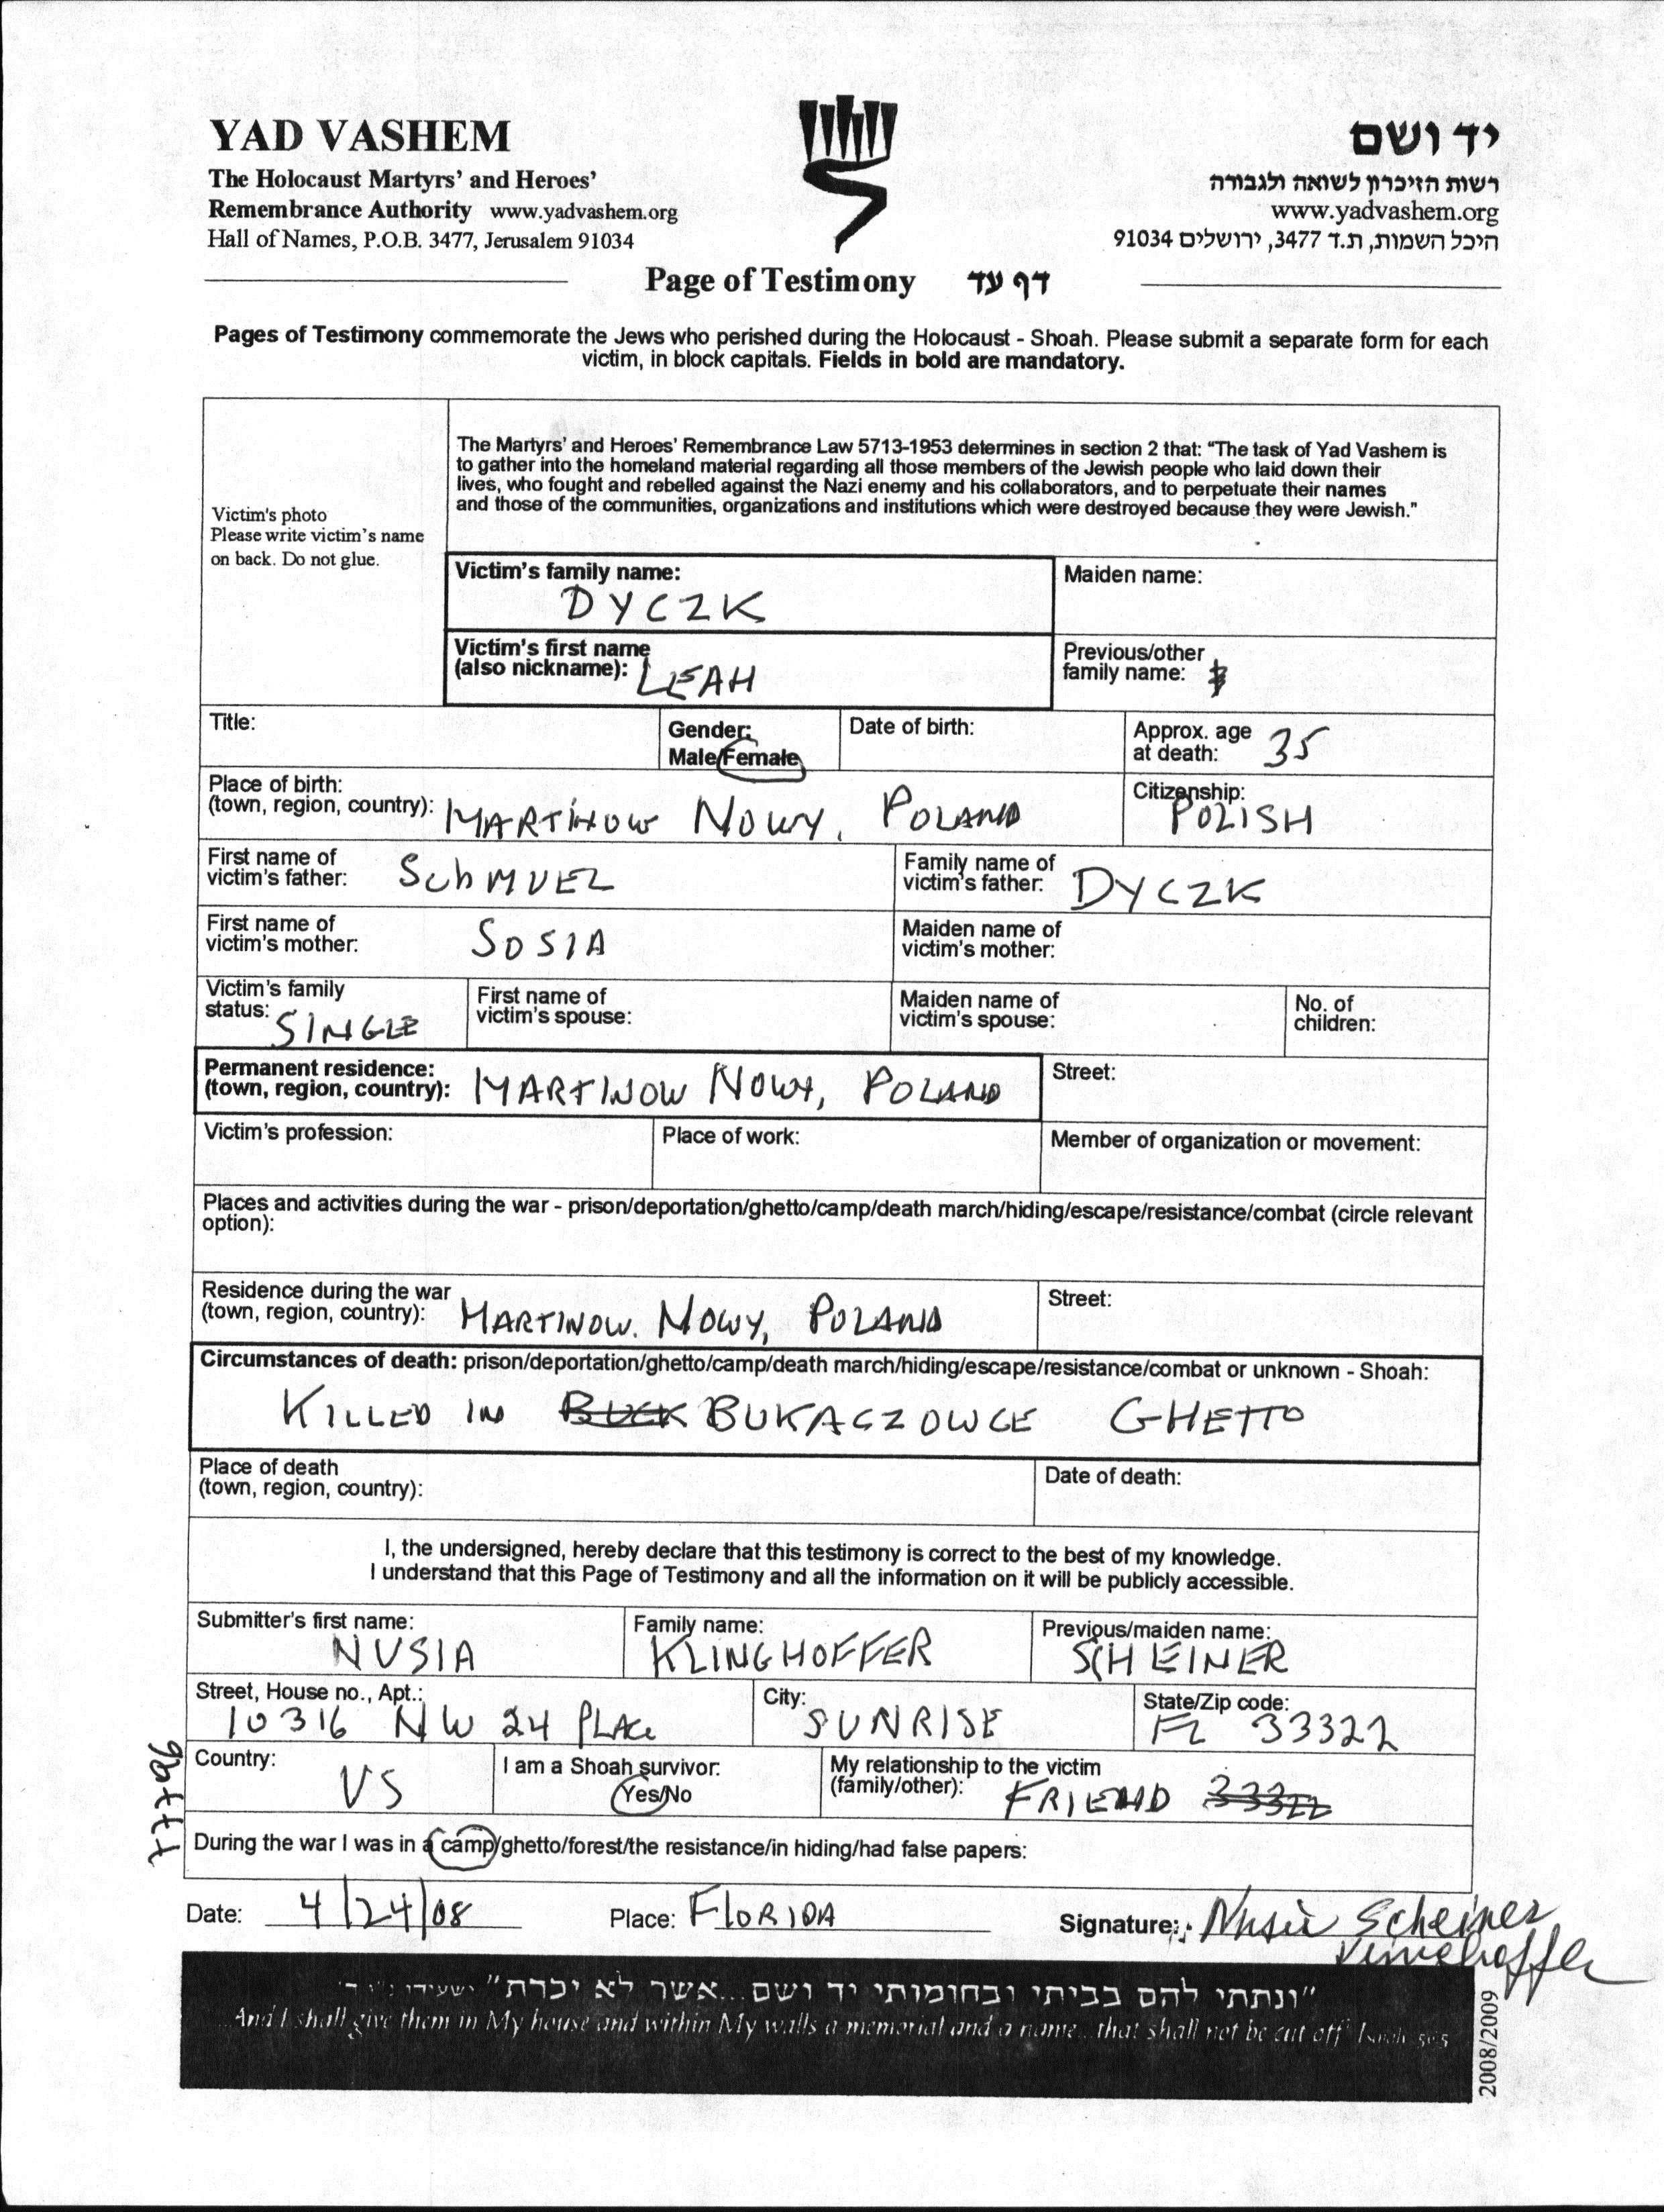 YAD VASHEM
The Holocaust Martyrs' and Heroes'
Remembrance Authority www.yadvashem.org
Hall of Names, P.O.B. 3477, Jerusalem 91034
יד ושם
רשות הזיכרון לשואה ולגבורה
www.yadvashem.org
היכל השמות, ת.ד 3477, ירושלים 91034
Page of Testimony דף עד
Pages of Testimony commemorate the Jews who perished during the Holocaust - Shoah. Please submit a separate form for each
victim, in block capitals. Fields in bold are mandatory.
Victim's photo
Please write victim's name
on back. Do not glue.
The Martyrs' and Heroes' Remembrance Law 5713-1953 determines in section 2 that: "The task of Yad Vashem is
to gather into the homeland material regarding all those members of the Jewish people who laid down their
lives, who fought and rebelled against the Nazi enemy and his collaborators, and to perpetuate their names
and those of the communities, organizations and institutions which were destroyed because they were Jewish."
Victim's family name:
DYCZK
Maiden name:
Victim's first name
(also nickname): LEAH
Previous/other
family name:
Title:
Gender:
Male/Female
Date of birth:
Approx. age
at death: 35
Place of birth:
(town, region, country): MARTINOW NOWY, POLAND
Citizenship:
POLISH
First name of
victim's father: SchMUEL
Family name of
victim's father: DYCZK
First name of
victim's mother: SOSIA
Maiden name of
victim's mother:
Victim's family
status: SINGLE
First name of
victim's spouse:
Maiden name of
victim's spouse:
No. of
children:
Permanent residence:
(town, region, country): MARTINOW NOWY, POLAND
Street:
Victim's profession:
Place of work:
Member of organization or movement:
Places and activities during the war - prison/deportation/ghetto/camp/death march/hiding/escape/resistance/combat (circle relevant
option):
Residence during the war
(town, region, country): MARTINOW. NOWY, POLAND
Street:
Circumstances of death: prison/deportation/ghetto/camp/death march/hiding/escape/resistance/combat or unknown - Shoah:
KILLED IN BUCK BUKACZOWCE GHETTO
Place of death
(town, region, country):
Date of death:
I, the undersigned, hereby declare that this testimony is correct to the best of my knowledge.
I understand that this Page of Testimony and all the information on it will be publicly accessible.
Submitter's first name:
NUSIA
Family name:
KLINGHOFFER
Previous/maiden name:
SCHEINER
Street, House no., Apt.:
10316 NW 24 PLACe
City:
SUNRISE
State/Zip code:
FL 33322
Country:
US
I am a Shoah survivor:
Yes/No
My relationship to the victim
(family/other): FRIEND 33322
During the war I was in a camp/ghetto/forest/the resistance/in hiding/had false papers:
Date: 4/24/08
Place: FLORIDA
Signature: Nusia Scheiner
Klinghoffer
"ונתתי להם בביתי ובחומותי יד ושם...אשר לא יכרת"
And I shall give them in My house and within My walls a memorial and a name...that shall not be cut off Isaiah 56:5
2008/2009